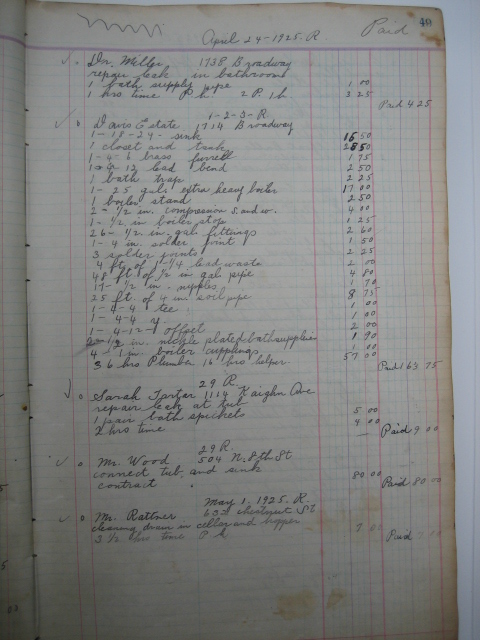 40
April 24-1925. R. Paid
Dr. Miller 1738 Broadway
repair leak in bathroom
1 bath supply pipe 1 00
1 hrs time P h. 2 P. 1h 3 25
Paid 4 25
1-2-3-R
Davis Estate 1714 Broadway
1-18-24- sink 16 50
1 closet and tank 28 50
1-4-6 brass ferrell 1 75
12 lead bend 2 50
1 bath trap 2 25
1-25 gals extra heavy boiler 17 00
1 boiler stand 2 50
2-1/2 in. compression S. and w. 4 00
1-1/2 in boiler stop 1 25
26-1/2 in. gal fittings 2 60
1-4 in. solder joint 1 50
3 solder joints 2 25
4 ft of 1 1/4 lead waste 2 00
48 ft of 1/2 in gal pipe 4 80
17-1/2 in. nipples 1 70
25 ft. of 4 in soil pipe 8 75
1-4-4 tee 1 00
1-4-4 y 1 00
1-4-12-1 offset 2 00
2-1/2 in. nickle plated bath supplies 1 90
4-1 in. boiler cupplings 1 00
36 hrs Plumber 16 hrs helper 57 00
Paid 163 75
29 R.
Sarah 1114 Kaighn Ave
repair leak at tub
1 pair bath spickets 5 00
2 hrs time 4 00
Paid 9 00
29 R.
Mr. Wood 504 N. 8th St
connect tub, and sink 80 00
contract Paid 80 00
May 1. 1925. R.
Mr. Rattner 632 Chestnut St
cleaning drain in cellar and upper
3 1/2 hrs time P h 7 00
Paid 7 00